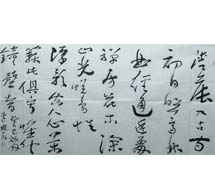 清晨入古寺
初日照高林
曲径通幽處
禅房花木深
山光悦鸟性
潭影空人心萬
籁此俱寂
鐘磬音